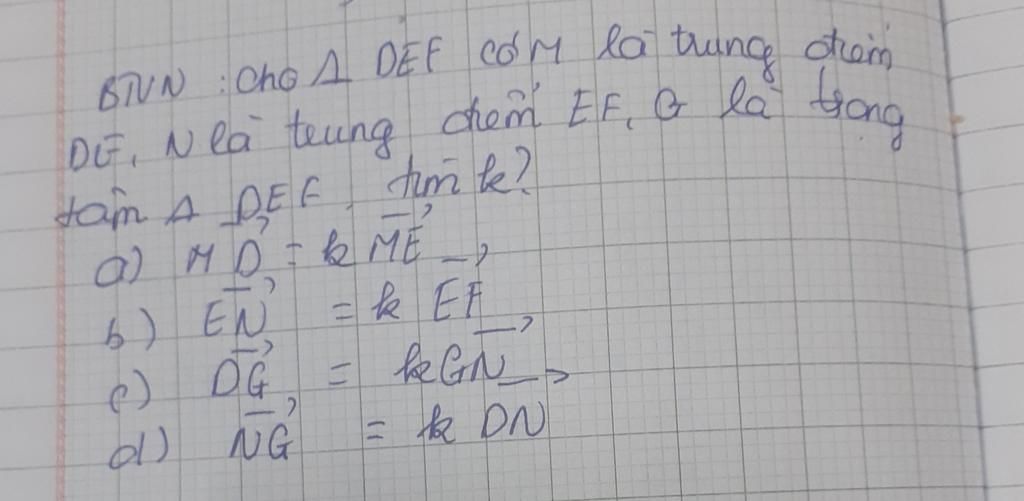 BTVN : Cho Δ DEF có M là trung điểm
DE, N là trung điểm EF, G là trọng
tâm Δ DEF. tìm k?
a) MD = k ME
b) EN = k EF
c) DG = k GN
d) NG = k DN